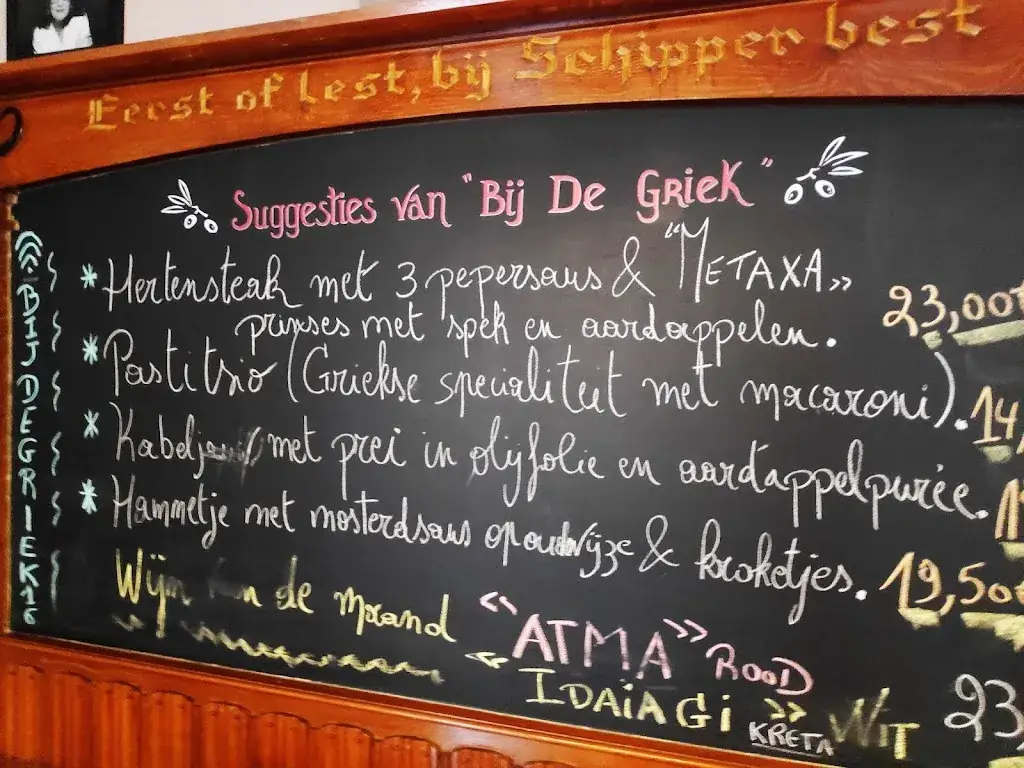 Eerst of Lest, bij Schipper best
Suggesties van "Bij De Griek"
BIJDEGRIEK
* Hertensteak met 3 pepersaus & "METAXA" 23,00
prinses met spek en aardappelen.
* Pastitsio (Griekse specialiteit met macaroni). 14,
* Kabeljauw met prei in olijfolie en aardappelpurée.
* Hammetje met mosterdsaus op ouwijze & kroketjes. 19,50
Wijn van de maand << ATMA >> ROOD
<< IDAIAGi >> KRETA WiT 23,